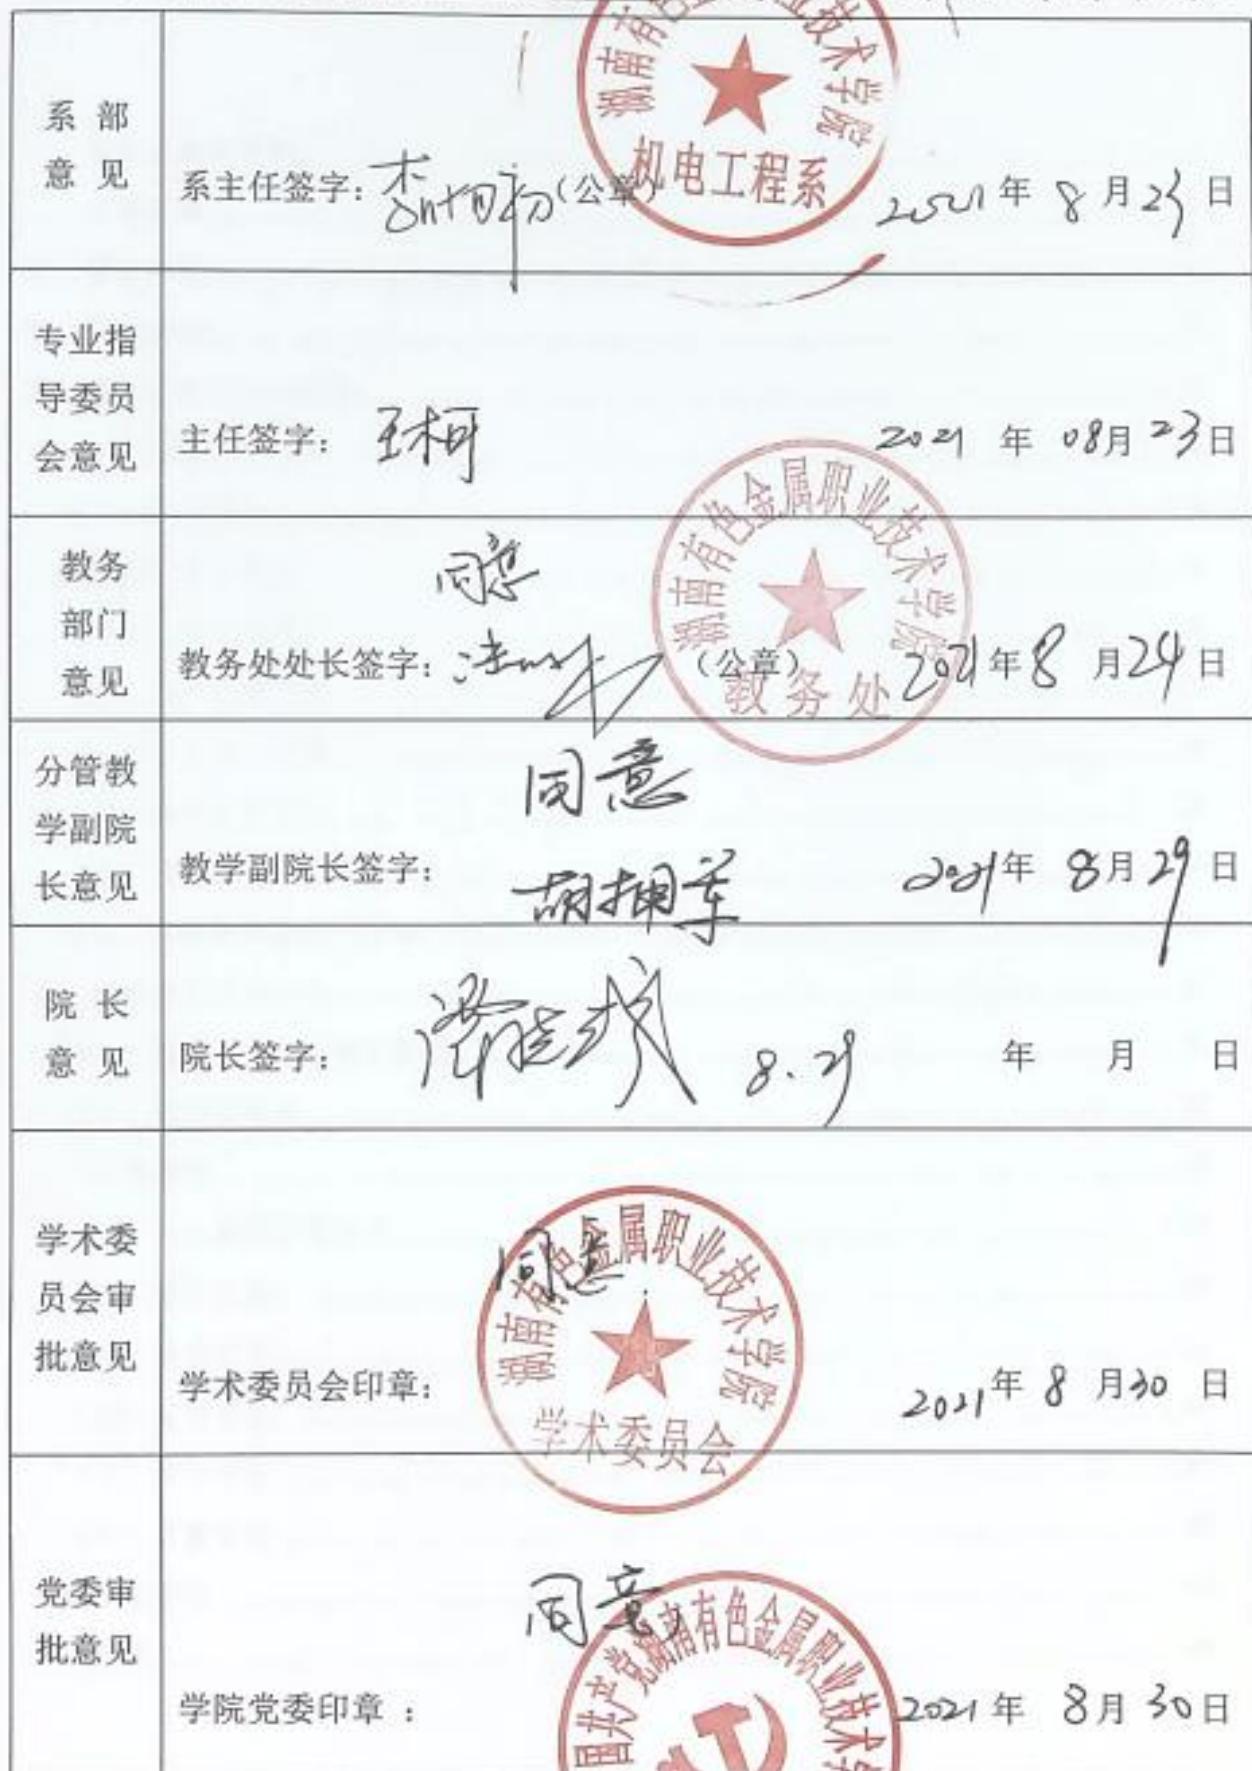 系 部
意 见
湖南有色金属职业技术学院
机电工程系
系主任签字：
（公章）
2021年 8月23日
专业指
导委员
会意见
主任签字： 王柯
2021 年 08月23日
教务
部门
意见
同意
教务处处长签字：
（公章）
湖南有色金属职业技术学院
教务处
2021年8月24日
分管教
学副院
长意见
同意
教学副院长签字： 胡拥军
2021年 8月29日
院 长
意 见
院长签字：
8.29
年 月 日
学术委
员会审
批意见
同意
湖南有色金属职业技术学院
学术委员会
学术委员会印章：
2021年 8月30日
党委审
批意见
同意
国共产党湖南有色金属职业技术学
学院党委印章 ：
2021年 8月30日